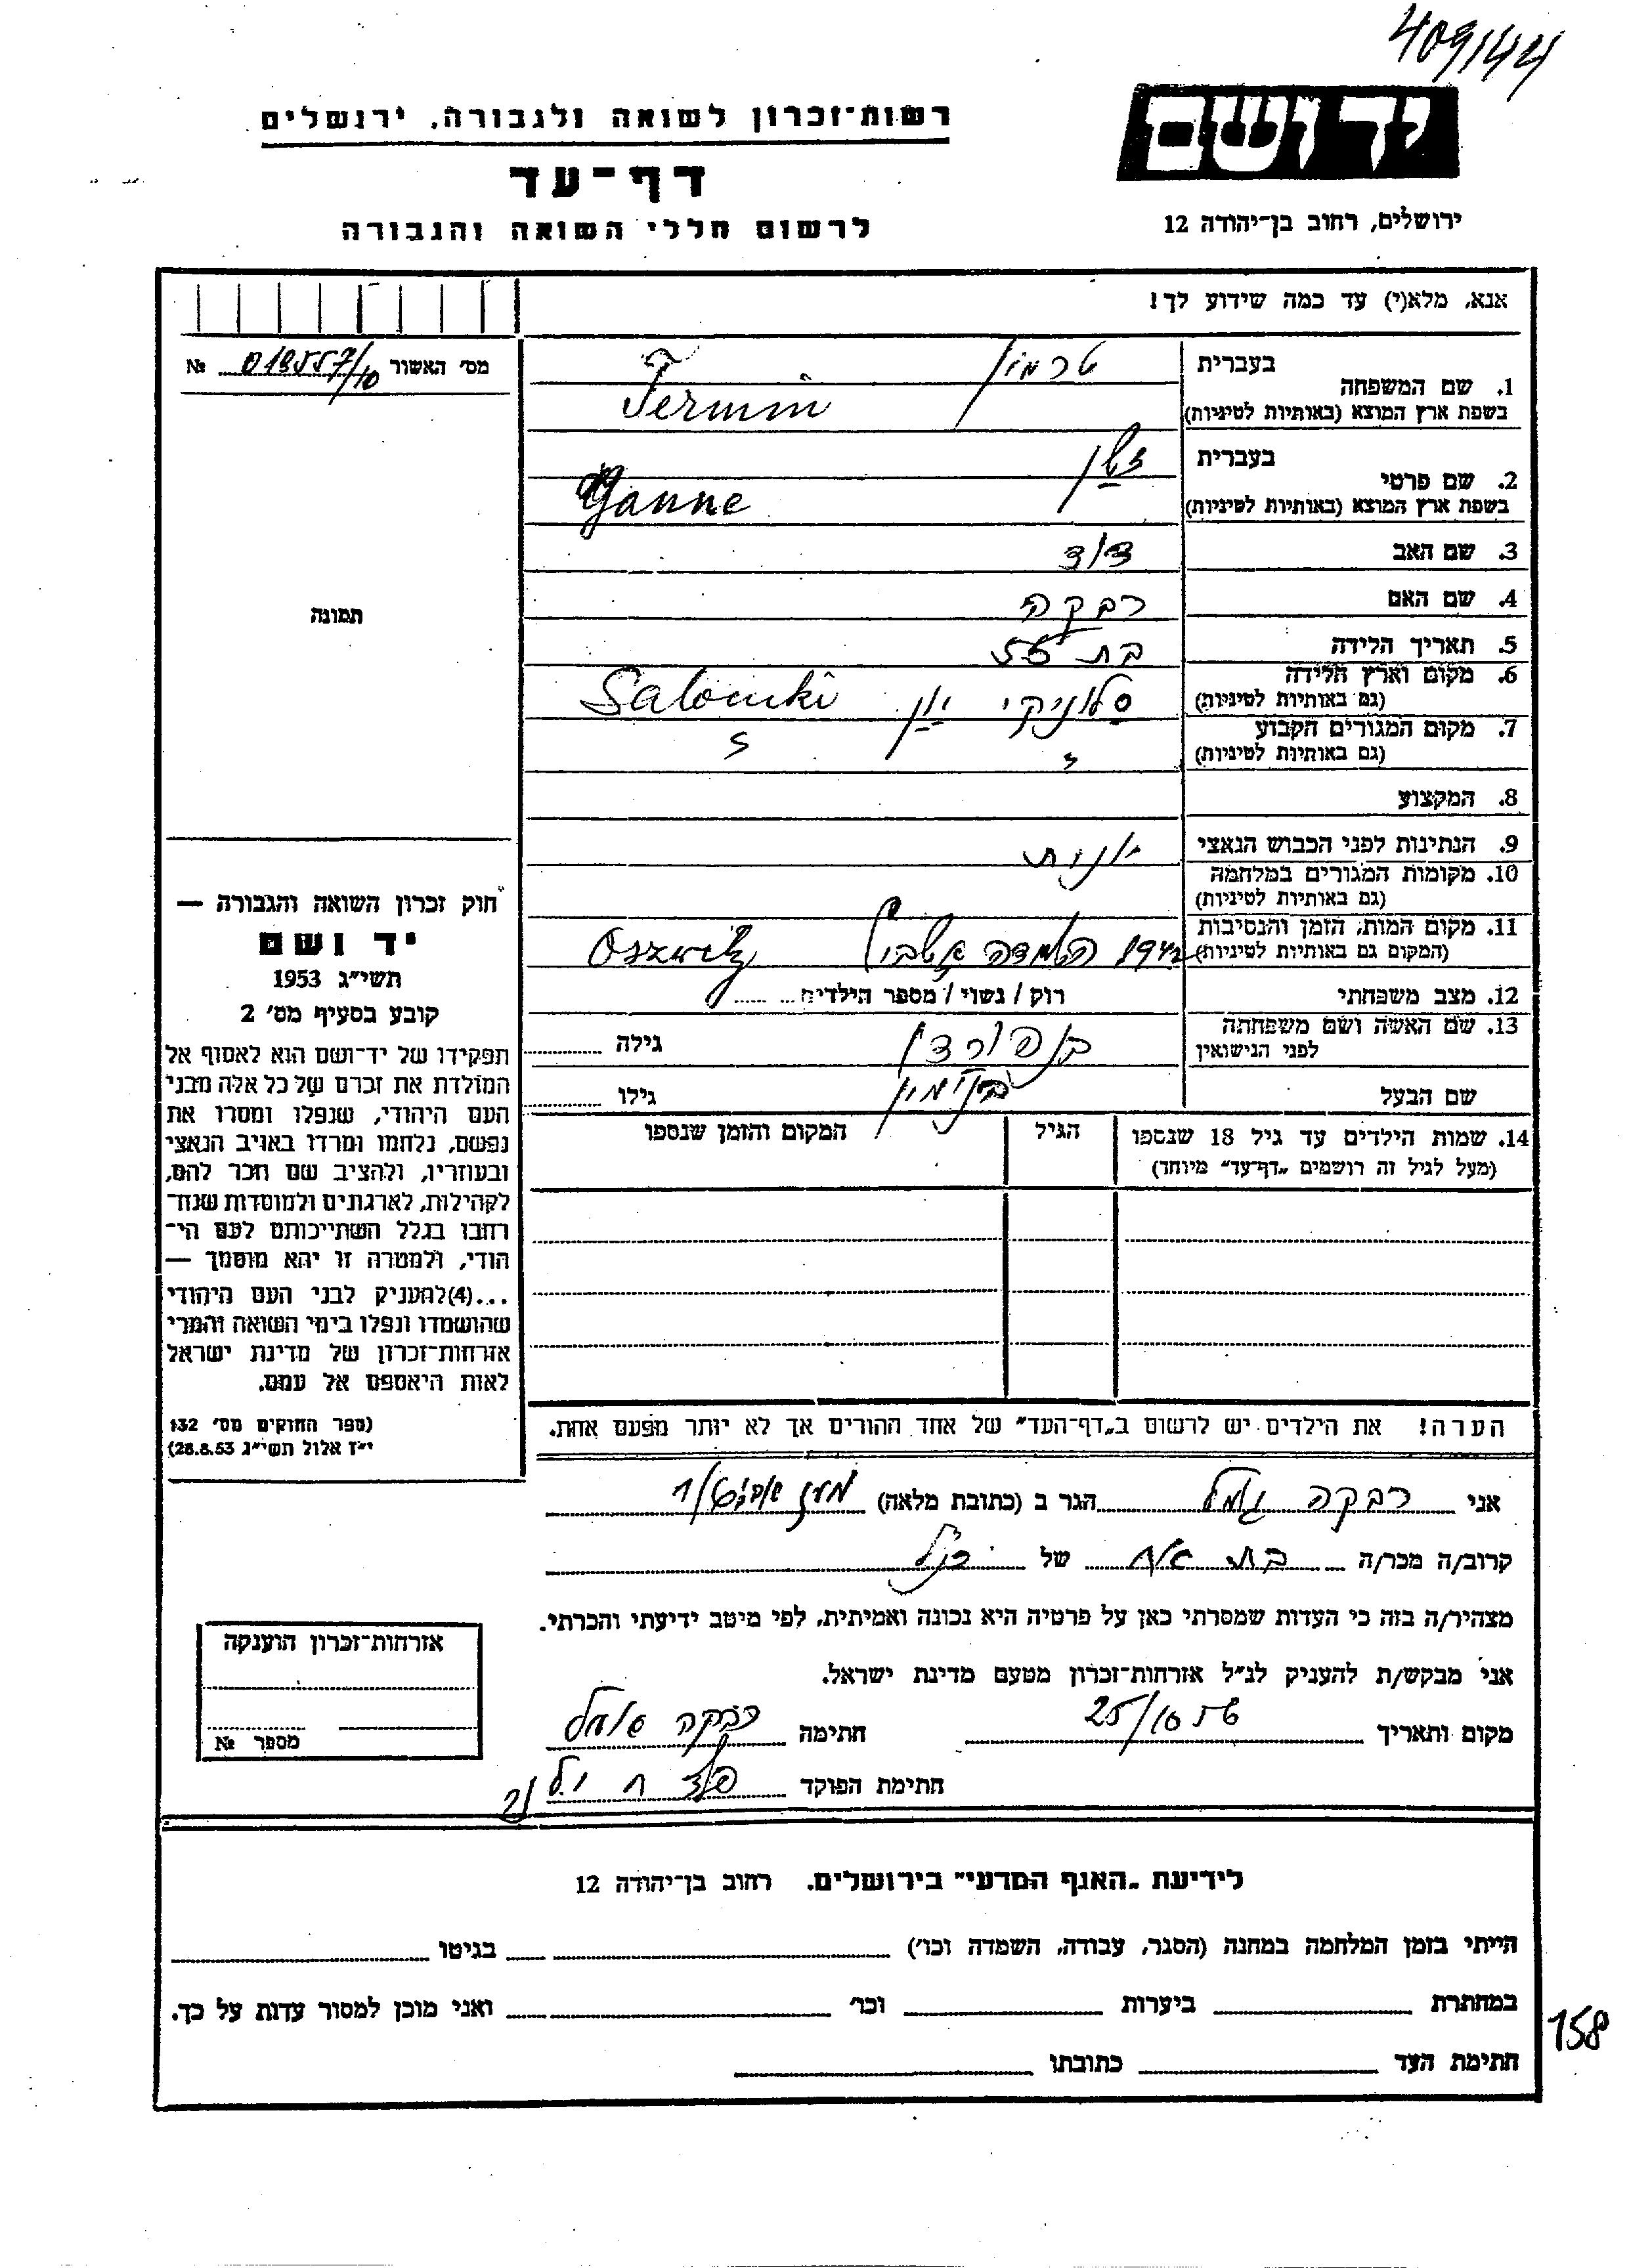 409144
רשות־זכרון לשואה ולגבורה, ירושלים
יד ושם
דף־עד
לרשום חללי השואה והגבורה
ירושלים, רחוב בן־יהודה 12
אנא, מלא(י) עד כמה שידוע לך!
מס׳ האשור № 019557/10
1. שם המשפחה בעברית טרמין
בשפת ארץ המוצא (באותיות לטיניות) Termin
2. שם פרטי בעברית
בשפת ארץ המוצא (באותיות לטיניות) Yanne
3. שם האב דוד
4. שם האם רבקה
5. תאריך הלידה בת 55
6. מקום וארץ הלידה סלוניקי יון Saloniki
(גם באותיות לטיניות)
7. מקום המגורים הקבוע
(גם באותיות לטיניות)
8. המקצוע
9. הנתינות לפני הכבוש הנאצי יונית
10. מקומות המגורים במלחמה
(גם באותיות לטיניות)
11. מקום המות, הזמן והנסיבות
(המקום גם באותיות לטיניות) 1942 Oszwitz
12. מצב משפחתי רוק / נשוי / מספר הילדים
13. שם האשה ושם משפחתה
לפני הנישואין גילה
שם הבעל בנימין גילו
14. שמות הילדים עד גיל 18 שנספו הגיל המקום והזמן שנספו
(מעל לגיל זה רושמים „דף־עד״ מיוחד)
הערה! את הילדים יש לרשום ב„דף־העד״ של אחד ההורים אך לא יותר מפעם אחת.
תמונה
חוק זכרון השואה והגבורה —
יד ושם
תשי״ג 1953
קובע בסעיף מס׳ 2
תפקידו של יד־ושם הוא לאסוף אל
המולדת את זכרם של כל אלה מבני
העם היהודי, שנפלו ומסרו את
נפשם, נלחמו ומרדו באויב הנאצי
ובעוזריו, ולהציב שם וזכר להם,
לקהילות, לארגונים ולמוסדות שנח־
רבו בגלל השתייכותם לעם הי־
הודי, ולמטרה זו יהא מוסמך —
...(4)להעניק לבני העם היהודי
שהושמדו ונפלו בימי השואה והמרי
אזרחות־זכרון של מדינת ישראל
לאות היאספם אל עמם.
(ספר החוקים מס׳ 132
י״ז אלול תשי״ג 28.8.53)
אני רבקה הגר ב (כתובת מלאה)
קרוב/ה מכר/ה בת אח של
מצהיר/ה בזה כי העדות שמסרתי כאן על פרטיה היא נכונה ואמיתית, לפי מיטב ידיעתי והכרתי.
אני מבקש/ת להעניק לנ״ל אזרחות־זכרון מטעם מדינת ישראל.
מקום ותאריך 25/10 56 חתימה רבקה
חתימת הפוקד
אזרחות־זכרון הוענקה
מספר №
לידיעת „האגף המדעי״ בירושלים. רחוב בן־יהודה 12
הייתי בזמן המלחמה במחנה (הסגר, עבודה, השמדה וכו׳) בגיטו
במחתרת ביערות וכו׳ ואני מוכן למסור עדות על כך.
חתימת העד כתובתו
158